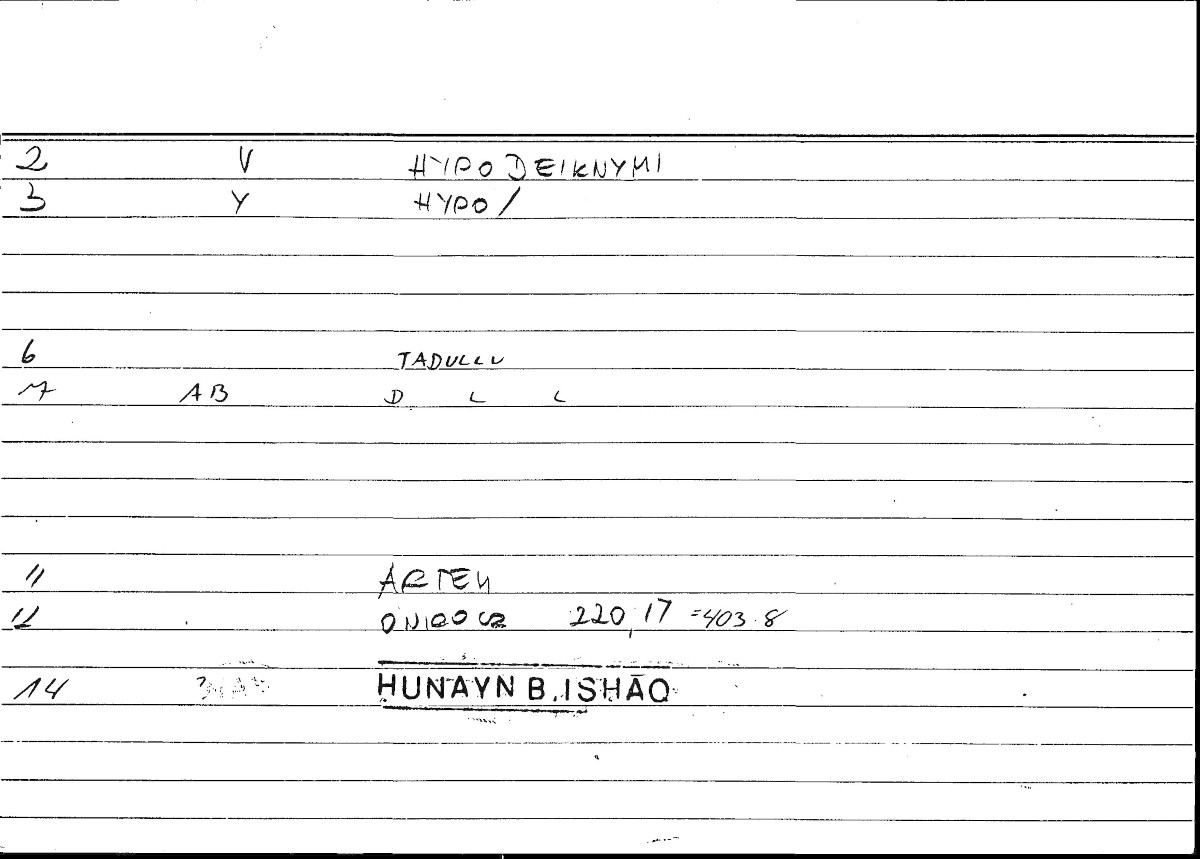 2 V HYPODEIKNYMI
3 Y HYPO/
6 TADULLU
7 AB D L L
11 ARTEM
12 ONIROCR 220,17 =403.8
14 HUNAYN B. ISHĀQ